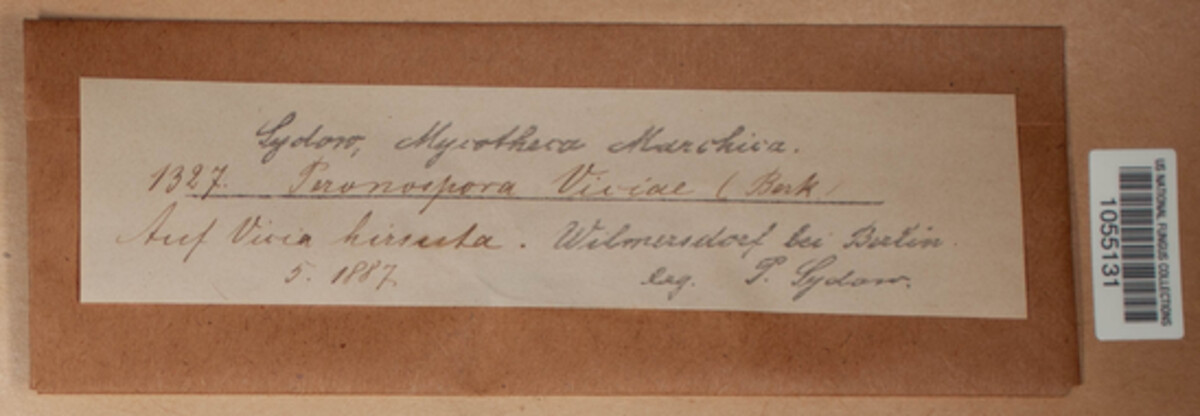 Sydow, Mycotheca Marchica.
1327. Peronospora Viciae (Berk)
Auf Vicia hirsuta. Wilmersdorf bei Berlin.
5. 1887. leg. P. Sydow.
US NATIONAL FUNGUS COLLECTIONS
1055131